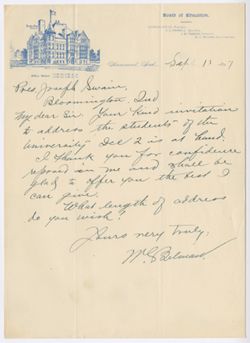 Board of Education.
Hammond, Ind., Sept 11
Pres. Joseph Swain,
Bloomington, Ind
My dear Sir: Your kind invitation
to address the students of the
University Dec 2 is at hand.
I thank you for confidence
in me and shall be
glad to offer you the best I
can give.
What length of address
do you wish?
Yours very truly,